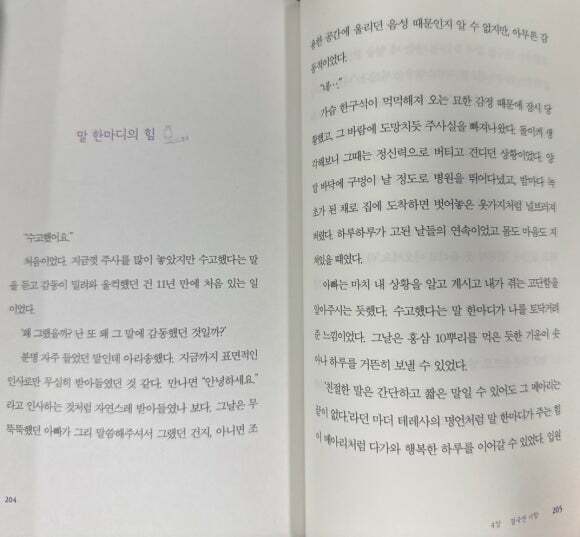 말 한마디의 힘
"수고했어요."
처음이었다. 지금껏 주사를 많이 놓았지만 수고했다는 말
을 듣고 감동이 밀려와 울컥했던 건 11년 만에 처음 있는 일
이었다.
'왜 그랬을까? 난 또 왜 그 말에 감동했던 것일까?'
분명 자주 들었던 말인데 아리송했다. 지금까지 표면적인
인사로만 무심히 받아들였던 것 같다. 만나면 "안녕하세요."
라고 인사하는 것처럼 자연스레 받아들였나 보다. 그날은 무
뚝뚝했던 아빠가 그리 말씀해주셔서 그랬던 건지, 아니면 조
204
용한 공간에 울리던 음성 때문인지 알 수 없지만, 아무튼 감
동적이었다.
"네…."
가슴 한구석이 먹먹해져 오는 묘한 감정 때문에 잠시 당
황했고, 그 바람에 도망치듯 주사실을 빠져나왔다. 돌이켜 생
각해보니 그때는 정신력으로 버티고 견디던 상황이었다. 양
말 바닥에 구멍이 날 정도로 병원을 뛰어다녔고, 밤마다 녹
초가 된 채로 집에 도착하면 벗어놓은 옷가지처럼 널브러져
버렸다. 하루하루가 고된 날들의 연속이었고 몸도 마음도 지
쳐있을 때였다.
아빠는 마치 내 상황을 알고 계시고 내가 겪는 고단함을
알아주시는 듯했다. 수고했다는 말 한마디가 나를 토닥거려
준 느낌이었다. 그날은 홍삼 10뿌리를 먹은 듯한 기운이 솟
아나 하루를 거뜬히 보낼 수 있었다.
'친절한 말은 간단하고 짧은 말일 수 있어도 그 메아리는
끝이 없다.'라던 마더 테레사의 명언처럼 말 한마디가 주는 힘
이 메아리처럼 다가와 행복한 하루를 이어갈 수 있었다. 입원
4장 결국엔 사람
205